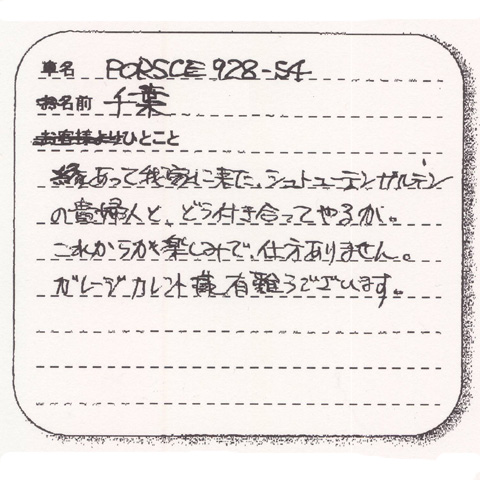 車名 PORSCE 928-S4
お名前 千葉
お客様よりひとこと
縁あって我家に来た、シュトゥーテンガルテン
の貴婦人と、どう付き合ってやるか。
これからが楽しみで、仕方ありません。
ガレージカレント様 有難うございます。